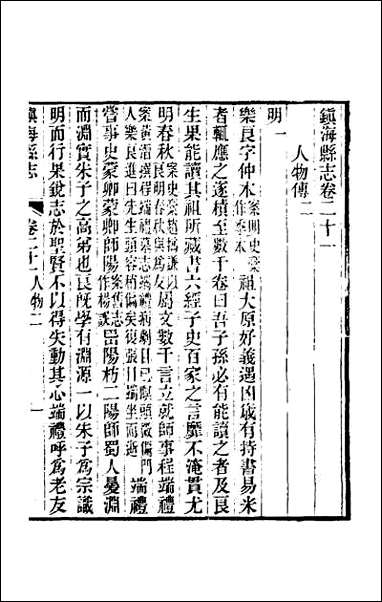 鎮海縣志卷二十一
人物傳二
明一
樂良字仲本案明史樂作季本祖大原好義遇凶歲有持書易米
者輒應之逐積至數千卷曰吾子孫必有能讀之者及良
生果能讀其祖所藏書六經子史百家之言靡不淹貫尤
明春秋良與為友屬文數千言立就師事程端禮
端禮
嘗事史蒙卿蒙卿師陽岊陽枋二陽師蜀人㬊淵
而淵實朱子之高弟也良既學有淵源一以朱子為宗識
明而行果銳志於聖賢不以得失動其心端禮呼為老友
鎮海縣志
卷二十一人物二
一